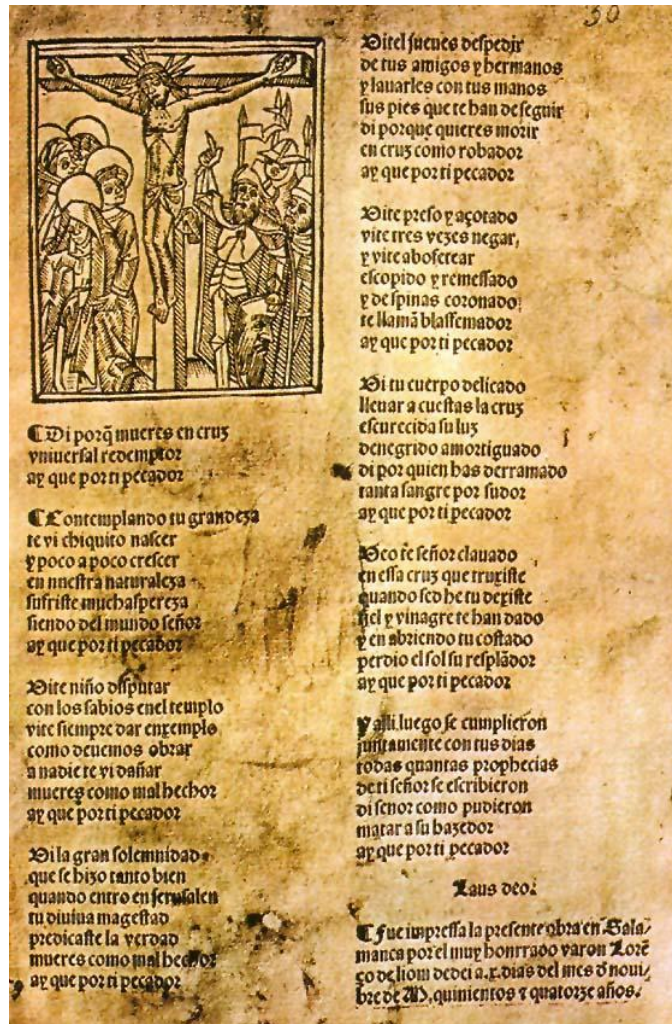 ¶ Di porq̃ mueres en cruz
vniuersal redemptor
ay que por ti pecador
¶ Contemplando tu grandeza
te vi chiquito nascer
y poco a poco crescer
en nuestra naturaleza
sufriste muchaspereza
siendo del mundo señor
ay que por ti pecador
Vite niño disputar
con los sabios enel templo
vite siempre dar enxemplo
como deuemos obrar
a nadie te vi dañar
mueres como mal hechor
ay que por ti pecador
Vi la gran solemnidad
que se hizo tanto bien
quando entro en jerusalen
tu diuina magestad
predicaste la verdad
mueres como mal hechor
ay que por ti pecador
30
Vitel jueues despedir
de tus amigos y hermanos
y lauarles con tus manos
sus pies que te han de seguir
di porque quieres morir
en cruz como robador
ay que por ti pecador
Vite preso y açotado
vite tres vezes negar,
y vite abofetear
escopido y remessado
y de spinas coronado
te llamã blassemador
ay que por ti pecador
Vi tu cuerpo delicado
lleuar a cuestas la cruz
escurecida su luz
denegrido amortiguado
di por quien has derramado
tanta sangre por sudor
ay que por ti pecador
Veo te señor clauado
en essa cruz que truxiste
quando sed he tu dexiste
fiel y vinagre te han dado
y en abriendo tu costado
perdio el sol su resplãdor
ay que por ti pecador
Y assi luego se cumplieron
juntamente con tus dias
todas quantas prophecias
de ti señor se escribieron
di señor como pudieron
matar a su hazedor
ay que por ti pecador
Laus deo.
¶ Fue impressa la presente obra en Sala/
manca por el muy honrrado varon Lorẽ
ço de liom dedei a.x. dias del mes d̃ noui/
bre de M, quinientos ⁊ quatorze años.